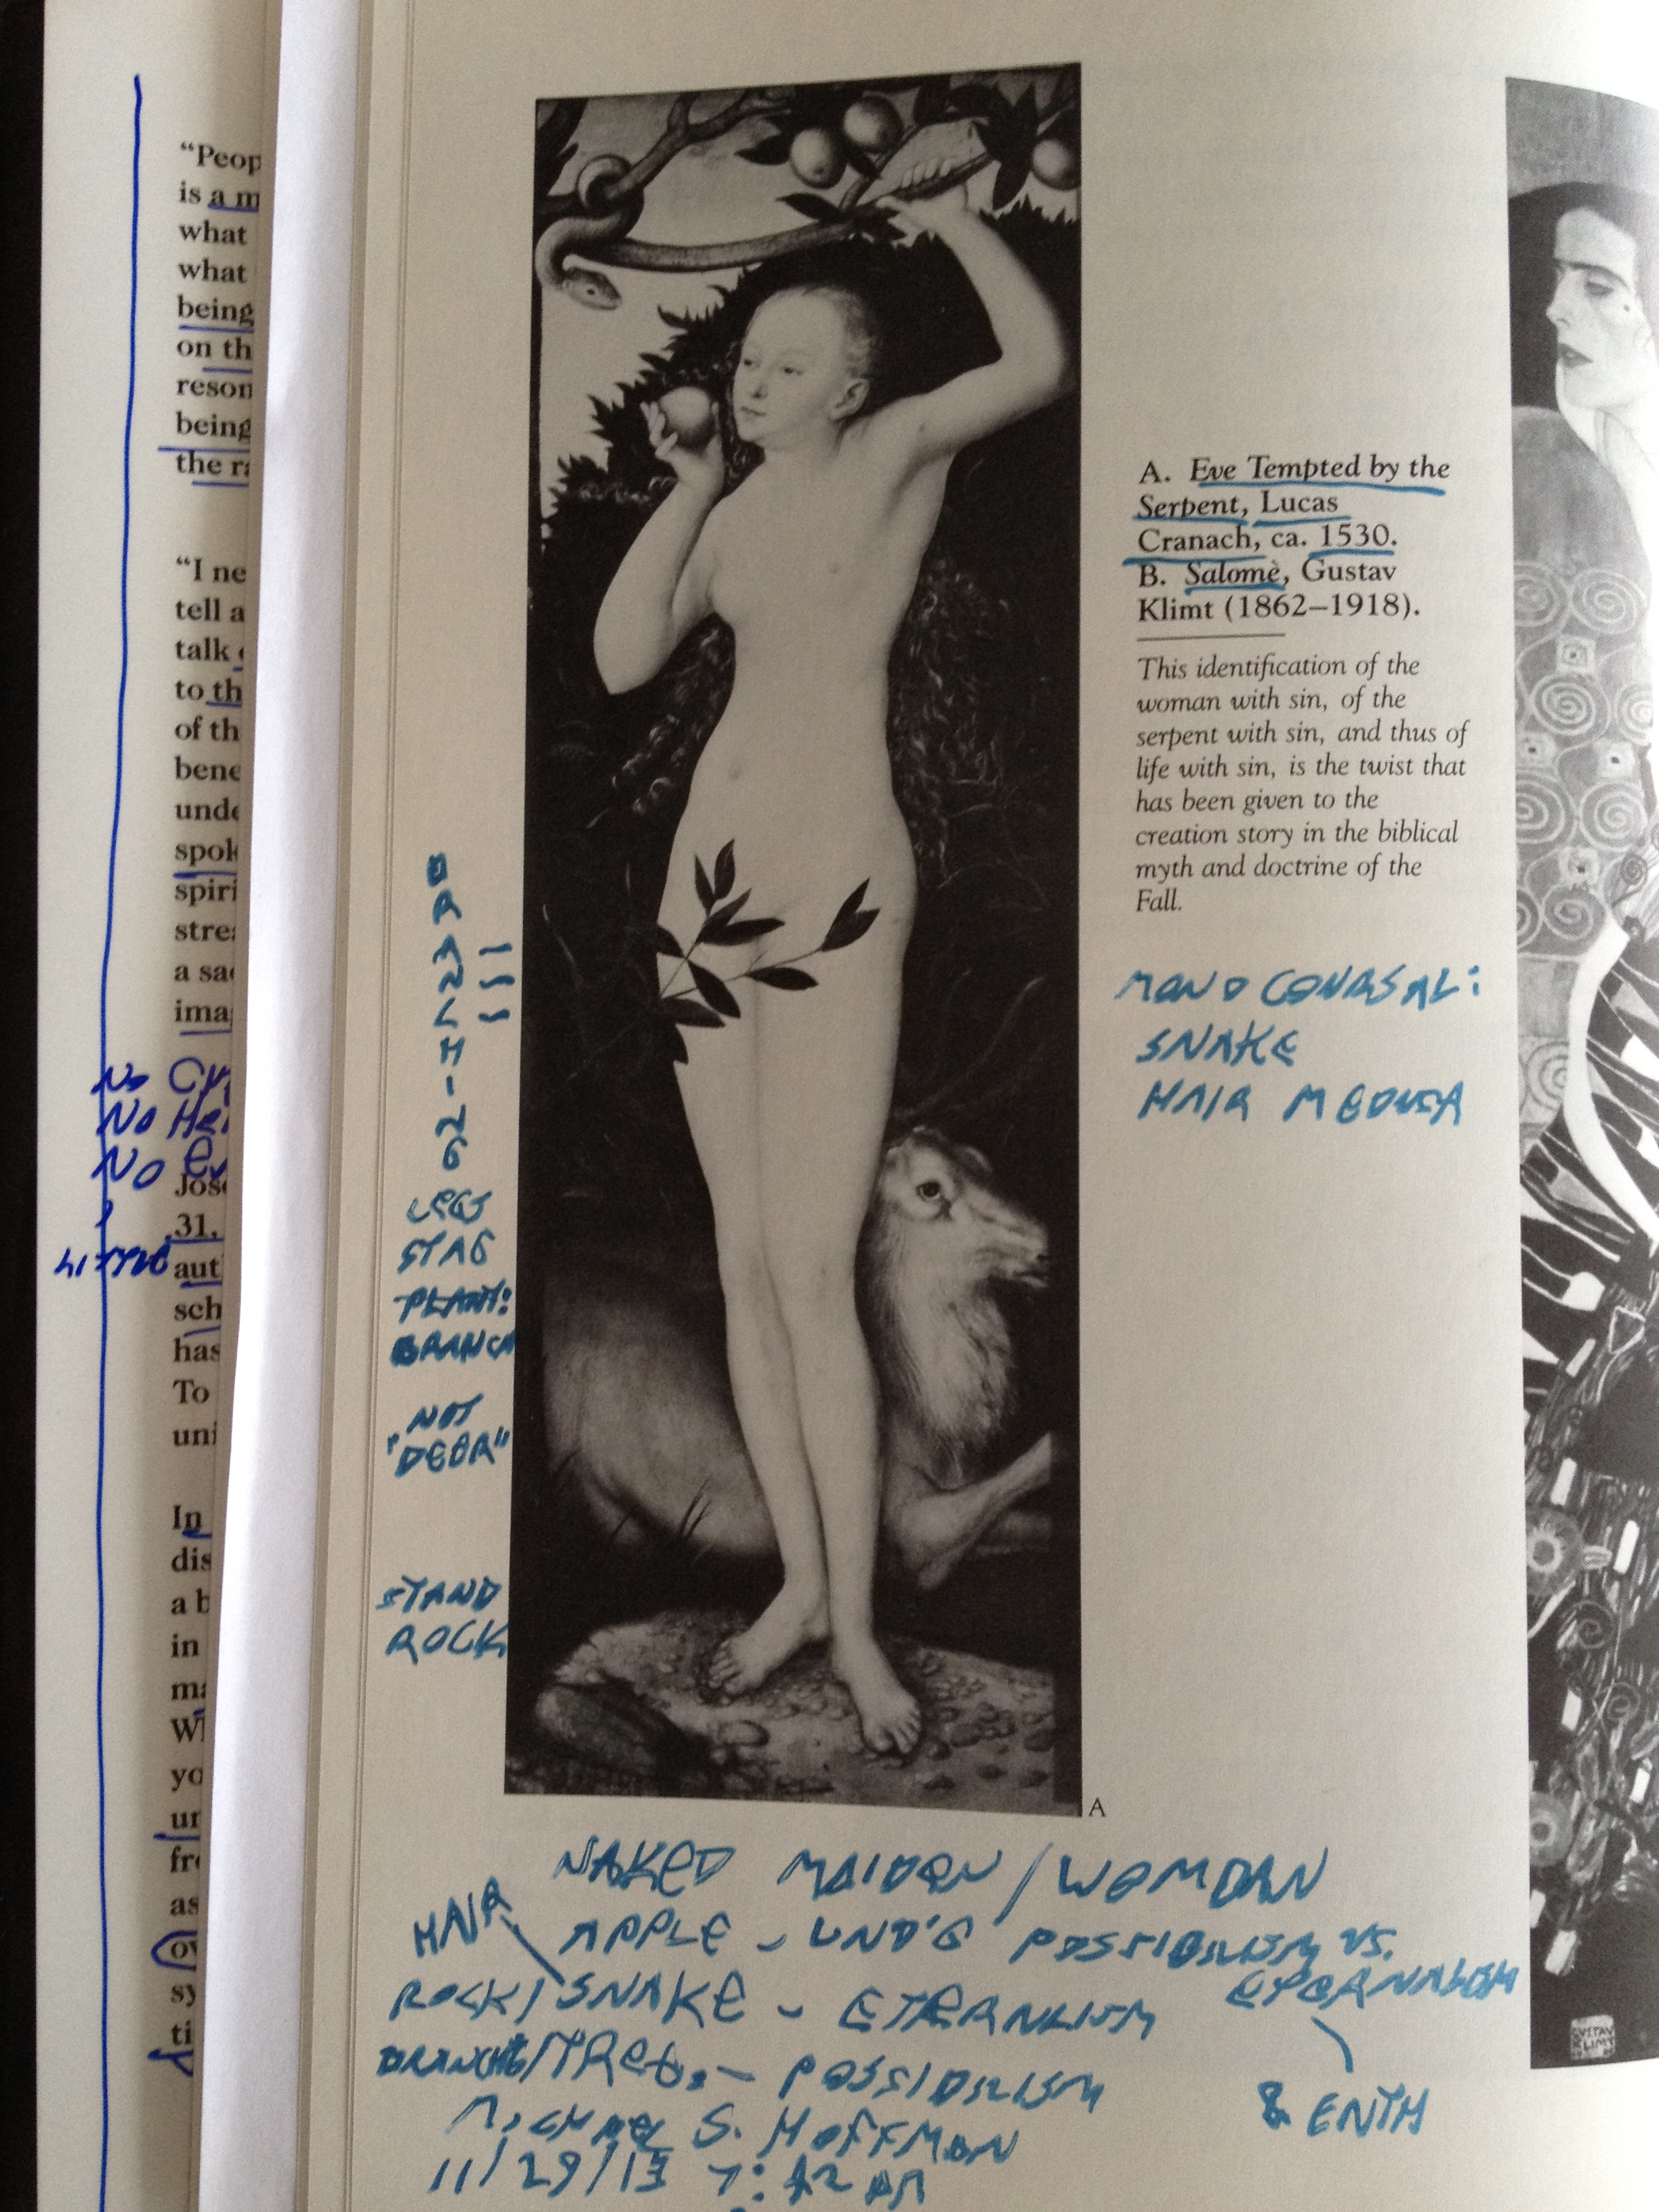 “Peop
is a m
what
what
being
on th
reson
being
the ra
“I ne
tell a
talk
to th
of th
bene
unde
spok
spiri
strea
a sac
ima
No
No Her
No
Jose
31,
LITTLE
aut
sch
has
To
uni
In
dis
a b
in
ma
W
yo
un
fr
as
ov
sy
ti
BRANCH-
LEGS
STAG
PLANT:
BRANCH
NOT
"DEER"
STAND
ROCK
A. Eve Tempted by the
Serpent, Lucas
Cranach, ca. 1530.
B. Salomè, Gustav
Klimt (1862–1918).
This identification of the
woman with sin, of the
serpent with sin, and thus of
life with sin, is the twist that
has been given to the
creation story in the biblical
myth and doctrine of the
Fall.
SNAKE
HAIR MEDUSA
A
NAKED MAIDEN / WOMDAN
HAIR
APPLE - UND'G POSSIBILISM VS.
ETERNALISM
ROCK/SNAKE - ETERNLISM
BRANCHE/TREE - POSSIBILISM
& ENTH
Michael S. Hoffman
11/29/13 7:42 AM
GUSTAV
KLIMT